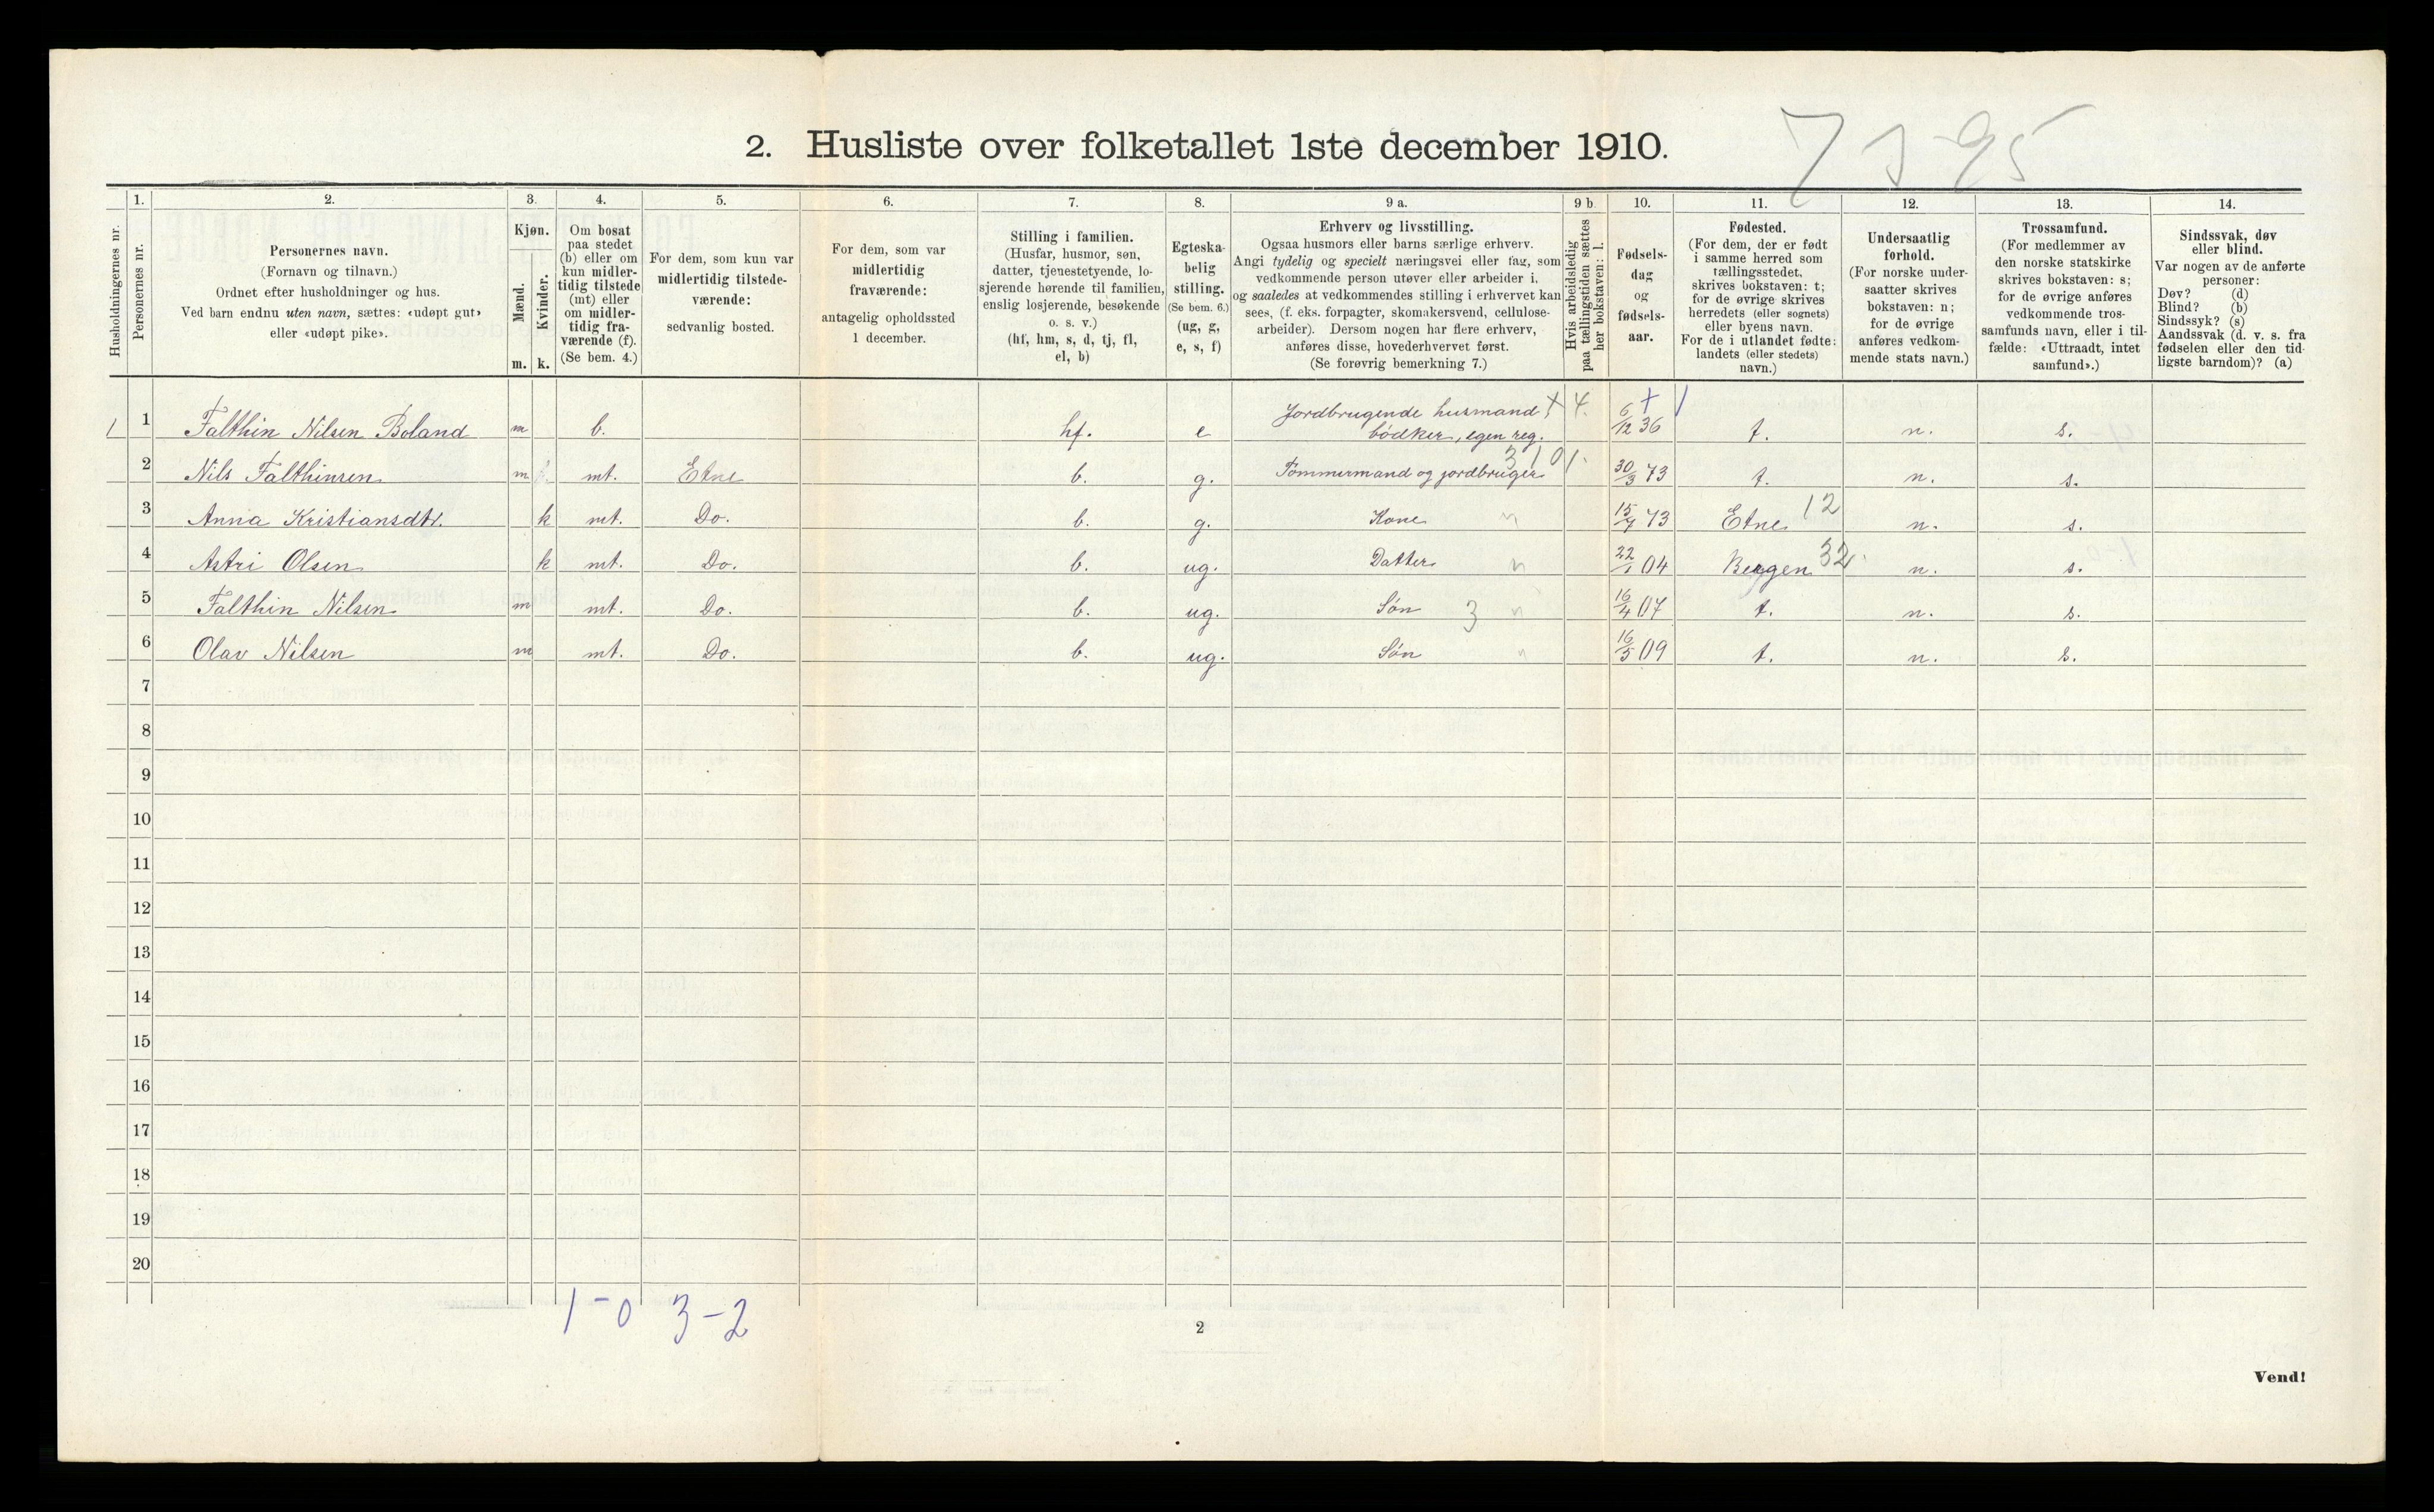 2. Husliste over folketallet 1ste december 1910.
1. 2. 3. 4. 5. 6. 7. 8. 9 a. 9 b 10. 11. 12. 13. 14.
Husholdningernes nr.
Personernes nr.
Personernes navn.
(Fornavn og tilnavn.)
Ordnet efter husholdninger og hus.
Ved barn endnu uten navn, sættes: «udøpt gut»
eller «udøpt pike».
Kjøn.
Mænd.
Kvinder.
m. k.
Om bosat
paa stedet
(b) eller om
kun midler-
tidig tilstede
(mt) eller
om midler-
tidig fra-
værende (f).
(Se bem. 4.)
For dem, som kun var
midlertidig tilstede-
værende:
sedvanlig bosted.
For dem, som var
midlertidig
fraværende:
antagelig opholdssted
1 december.
Stilling i familien.
(Husfar, husmor, søn,
datter, tjenestetyende, lo-
sjerende hørende til familien,
enslig losjerende, besøkende
o. s. v.)
(hf, hm, s, d, tj, fl,
el, b)
Egteska-
belig
stilling.
(Se bem. 6.)
(ug, g,
e, s, f)
Erhverv og livsstilling.
Ogsaa husmors eller barns særlige erhverv.
Angi tydelig og specielt næringsvei eller fag, som
vedkommende person utøver eller arbeider i,
og saaledes at vedkommendes stilling i erhvervet kan
sees, (f. eks. forpagter, skomakersvend, cellulose-
arbeider). Dersom nogen har flere erhverv,
anføres disse, hovederhvervet først.
(Se forøvrig bemerkning 7.)
Hvis arbeidsledig
paa tællingstiden sættes
her bokstaven: l.
Fødsels-
dag
og
fødsels-
aar.
Fødested.
(For dem, der er født
i samme herred som
tællingsstedet,
skrives bokstaven: t;
for de øvrige skrives
herredets (eller sognets)
eller byens navn.
For de i utlandet fødte:
landets (eller stedets)
navn.)
Undersaatlig
forhold.
(For norske under-
saatter skrives
bokstaven: n;
for de øvrige
anføres vedkom-
mende stats navn.)
Trossamfund.
(For medlemmer av
den norske statskirke
skrives bokstaven: s;
for de øvrige anføres
vedkommende tros-
samfunds navn, eller i til-
fælde: «Uttraadt, intet
samfund».)
Sindssvak, døv
eller blind.
Var nogen av de anførte
personer:
Døv? (d)
Blind? (b)
Sindssyk? (s)
Aandssvak (d. v. s. fra
fødselen eller den tid-
ligste barndom)? (a)
Jordbrugende husmand, + 4.
1 1 Falthin Nilsen Boland m b. hf. e bödker, egen reg. 6/12 36 t. n. s.
3101
2 Nils Falthinsen m mt. Etne b. g. Tömmermand og jordbruger 30/3 73 t. n. s.
3 Anna Kristiansdtr. k mt. Do. b. g. Kone n 15/7 73 Etne 12 n. s.
4 Astri Olsen k mt. Do. b. ug. Datter n 22/1 04 Bergen 32 n. s.
5 Falthin Nilsen m mt. Do. b. ug. Sön 3 n 16/4 07 t. n. s.
6 Olav Nilsen m mt. Do. b. ug. Sön n 16/5 09 t. n. s.
7
8
9
10
11
12
13
14
15
16
17
18
19
20
1-0 3-2
2
Vend!